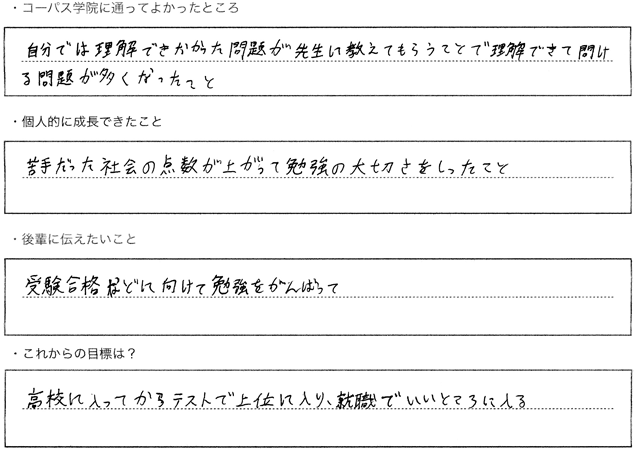 ・コーパス学院に通ってよかったところ
自分では理解できなかった問題が先生に教えてもらうことで理解できて問け
る問題が多くなったこと
・個人的に成長できたこと
苦手だった社会の点数が上がって勉強の大切さをしったこと
・後輩に伝えたいこと
受験合格などに向けて勉強をがんばって
・これからの目標は？
高校に入ってからテストで上位に入り、就職でいいところに入る